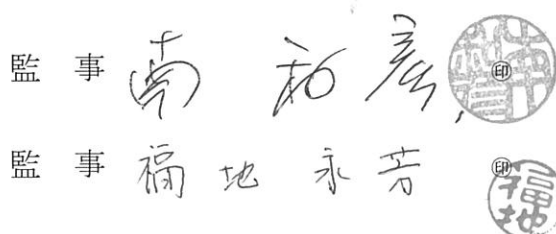 監 事 南 和彦 ㊞
監 事 福地 永芳 ㊞
福地